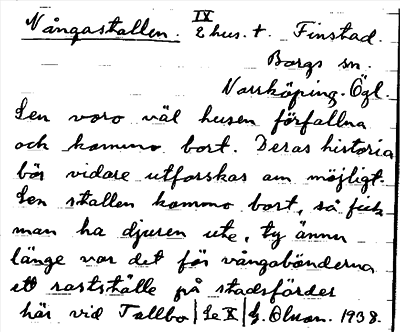 IV
Vångastallen. 2 hus. t. Finstad.
Borgs sn.
Norrköping. Ögl.
Sen voro väl husen förfallna
och kommo bort. Deras historia
bör vidare utforskas om möjligt.
Sen stallen kommo bort, så fick
man ha djuren ute, ty ännu
länge var det för vångabönderna
ett rastställe på stadsfärder
här vid Tallbo | Se X | G. Olson. 1938.